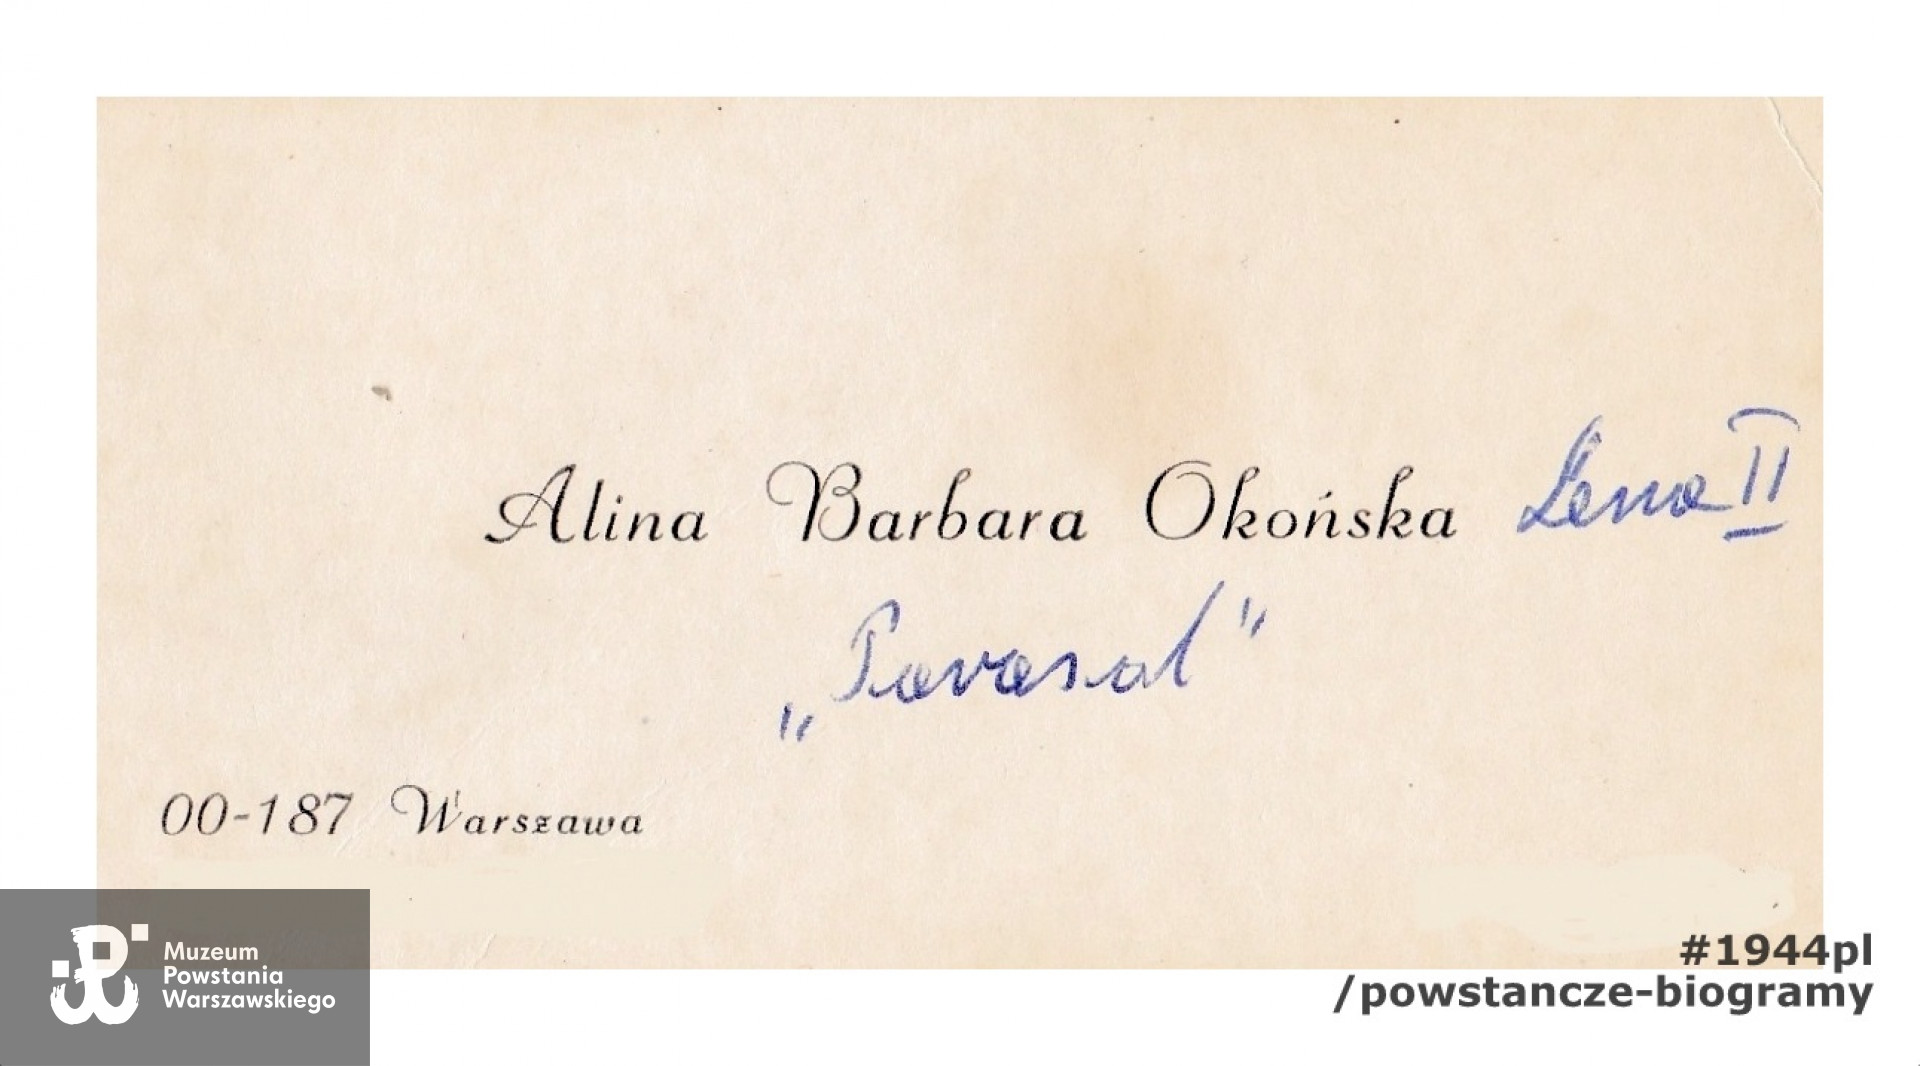 Alina Barbara Okońska Lena II
„Parasol"
00-187 Warszawa
Muzeum
Powstania
Warszawskiego
#1944pl
/powstancze-biogramy